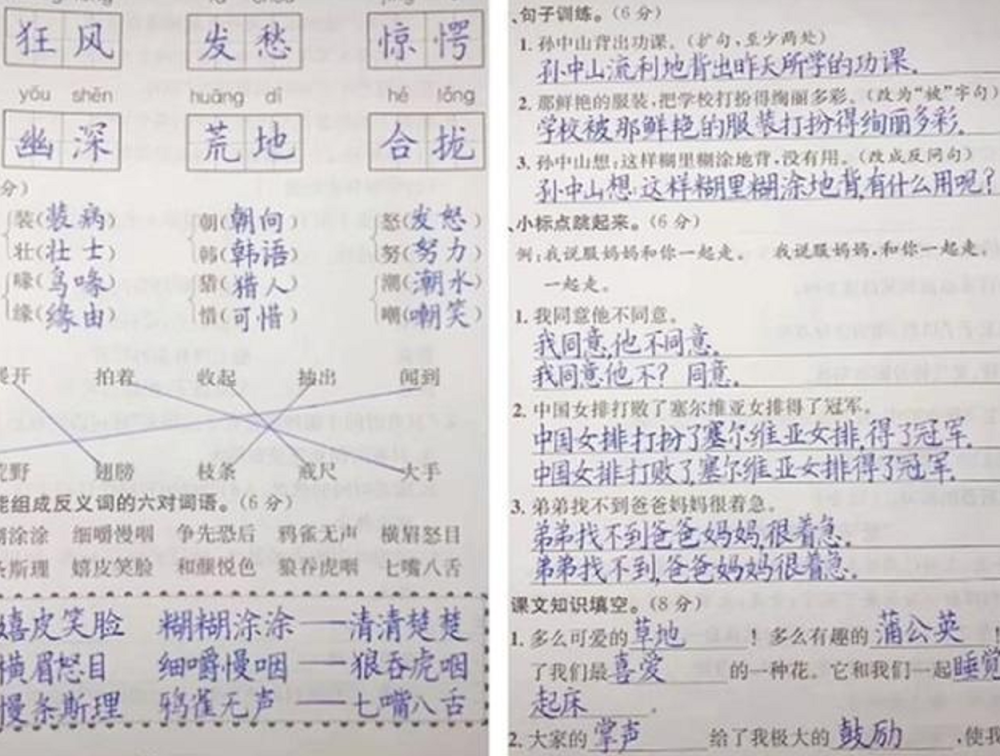 狂风 发愁 惊愕
yōu shēn huāng dì hé lǒng
幽深 荒地 合拢
分)
装(装病) 朝(朝向) 怒(发怒)
壮(壮士) 韩(韩语) 努(努力)
喙(鸟喙) 猎(猎人) 潮(潮水)
缘(缘由) 惜(可惜) 嘲(嘲笑)
展开 拍着 收起 抽出 闻到
荒野 翅膀 枝条 戒尺 大手
能组成反义词的六对词语。(6分)
糊涂涂 细嚼慢咽 争先恐后 鸦雀无声 横眉怒目
条斯理 嬉皮笑脸 和颜悦色 狼吞虎咽 七嘴八舌
嬉皮笑脸 糊糊涂涂——清清楚楚
横眉怒目 细嚼慢咽——狼吞虎咽
慢条斯理 鸦雀无声——七嘴八舌
、句子训练。(6分)
1. 孙中山背出功课。(扩句,至少两处)
孙中山流利地背出昨天所学的功课.
2. 那鲜艳的服装,把学校打扮得绚丽多彩。(改为“被”字句)
学校被那鲜艳的服装打扮得绚丽多彩.
3. 孙中山想:这样糊里糊涂地背,没有用。(改成反问句)
孙中山想:这样糊里糊涂地背,有什么用呢?
、小标点跳起来。(6分)
例:我说服妈妈和你一起走。 我说服妈妈,和你一起走。
一起走。
1. 我同意他不同意。
我同意,他不同意.
我同意他不?同意.
2. 中国女排打败了塞尔维亚女排得了冠军。
中国女排打扮了塞尔维亚女排,得了冠军.
中国女排打败了,塞尔维亚女排得了冠军.
3. 弟弟找不到爸爸妈妈很着急。
弟弟找不到爸爸,妈妈很着急.
弟弟找不到,爸爸妈妈很着急.
课文知识填空。(8分)
1. 多么可爱的草地!多么有趣的蒲公英
了我们最喜爱的一种花。它和我们一起睡觉
起床。
2. 大家的掌声给了我极大的鼓励,使我